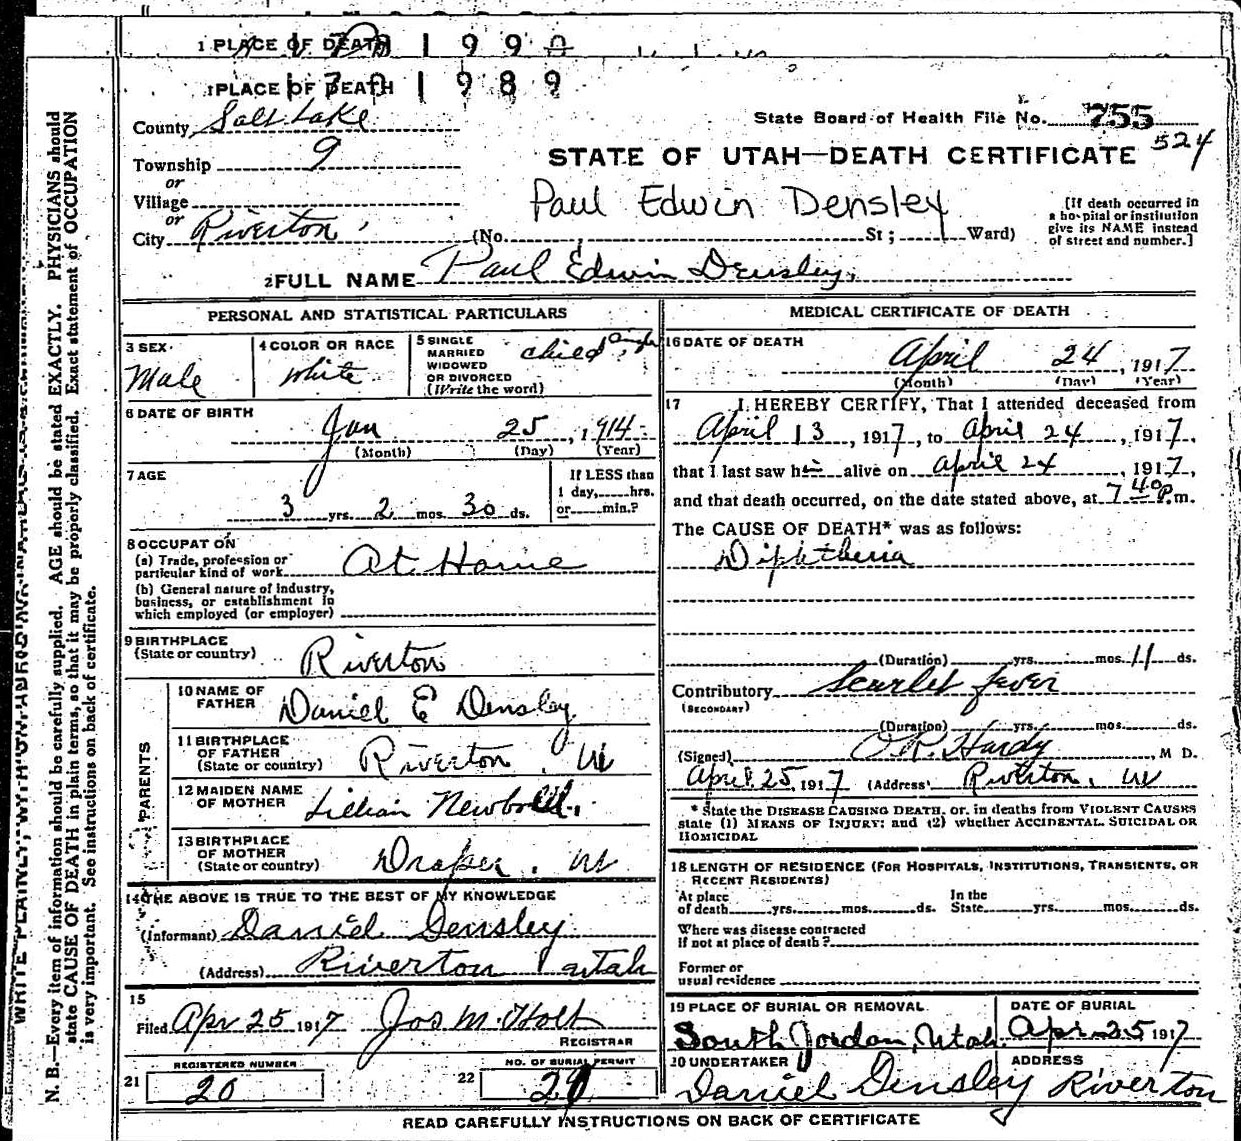 1 PLACE OF DEATH 1 9 9 0
1 PLACE OF DEATH 1 9 8 9
County Salt Lake
State Board of Health File No. 755
524
Township 9
STATE OF UTAH—DEATH CERTIFICATE
or
Village
Paul Edwin Densley
or
City Riverton
(No. St ; Ward)
[If death occurred in
a hospital or institution
give its NAME instead
of street and number.]
2 FULL NAME Paul Edwin Densley
PERSONAL AND STATISTICAL PARTICULARS
3 SEX
Male
4 COLOR OR RACE
White
5 SINGLE
MARRIED
WIDOWED
OR DIVORCED
(Write the word)
child Single
6 DATE OF BIRTH
Jan 25, 1914
(Month) (Day) (Year)
7 AGE
3 yrs. 2 mos. 30 ds.
If LESS than
1 day, hrs.
or min.?
8 OCCUPATION
(a) Trade, profession or
particular kind of work At Home
(b) General nature of industry,
business, or establishment in
which employed (or employer)
9 BIRTHPLACE
(State or country) Riverton
PARENTS
10 NAME OF
FATHER Daniel E Densley
11 BIRTHPLACE
OF FATHER
(State or country) Riverton, Ut
12 MAIDEN NAME
OF MOTHER Lillian Newbold
13 BIRTHPLACE
OF MOTHER
(State or country) Draper, Ut
14 THE ABOVE IS TRUE TO THE BEST OF MY KNOWLEDGE
(Informant) Daniel Densley
(Address) Riverton Utah
15
Filed Apr 25 1917 Jos M. Holt
REGISTRAR
REGISTERED NUMBER
21 20
NO. OF BURIAL PERMIT
22 20
MEDICAL CERTIFICATE OF DEATH
16 DATE OF DEATH
April 24, 1917
(Month) (Day) (Year)
17 I HEREBY CERTIFY, That I attended deceased from
April 13, 1917, to April 24, 1917,
that I last saw him alive on April 24, 1917,
and that death occurred, on the date stated above, at 7 40 P.m.
The CAUSE OF DEATH* was as follows:
Diphtheria
(Duration) yrs. mos. 11 ds.
Contributory Scarlet fever
(SECONDARY)
(Duration) yrs. mos. ds.
(Signed) O. R. Hardy, M D.
April 25, 1917 (Address) Riverton, Ut
* State the DISEASE CAUSING DEATH, or, in deaths from VIOLENT CAUSES
state (1) MEANS OF INJURY; and (2) whether ACCIDENTAL, SUICIDAL OR
HOMICIDAL
18 LENGTH OF RESIDENCE (FOR HOSPITALS, INSTITUTIONS, TRANSIENTS, OR
RECENT RESIDENTS)
At place
of death yrs. mos. ds.
In the
State yrs. mos. ds.
Where was disease contracted
If not at place of death?
Former or
usual residence
19 PLACE OF BURIAL OR REMOVAL
South Jordan, Utah.
DATE OF BURIAL
Apr 25 1917
20 UNDERTAKER
Daniel Densley
ADDRESS
Riverton
READ CAREFULLY INSTRUCTIONS ON BACK OF CERTIFICATE
N. B.—Every item of information should be carefully supplied. AGE should be stated EXACTLY. PHYSICIANS should
state CAUSE OF DEATH in plain terms, so that it may be properly classified. Exact statement of OCCUPATION
is very important. See instructions on back of certificate.